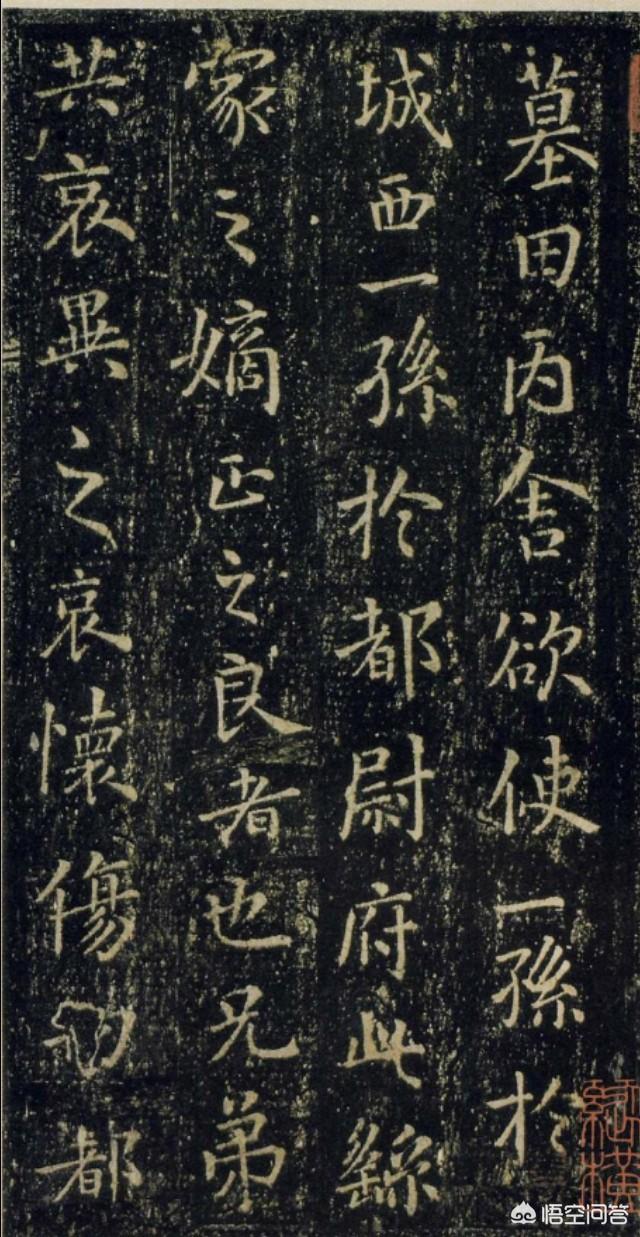 墓田丙舍欲使一孫於
城西一孫於都尉府此繇
家之嫡正之良者也兄弟
共哀異之哀懷傷切都
悟空问答